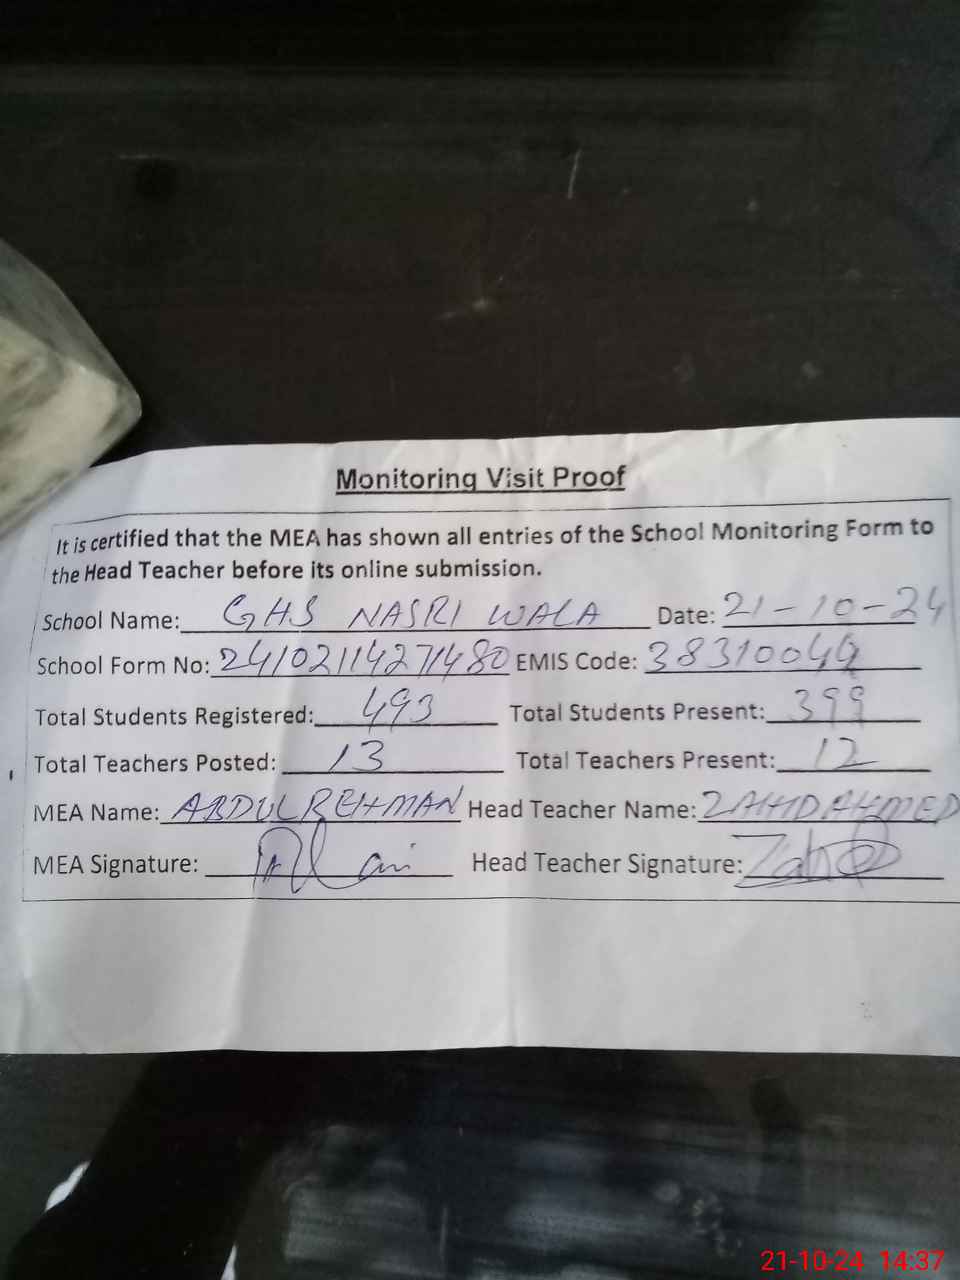 Monitoring Visit Proof
It is certified that the MEA has shown all entries of the School Monitoring Form to
the Head Teacher before its online submission.
School Name: GHS NASRI WALA Date: 21-10-24
School Form No: 24102114271480 EMIS Code: 38310049
Total Students Registered: 493 Total Students Present: 399
Total Teachers Posted: 13 Total Teachers Present: 12
MEA Name: ABDUL REHMAN Head Teacher Name: ZAHID AHMED
MEA Signature: Head Teacher Signature: Zahid
21-10-24 14:37